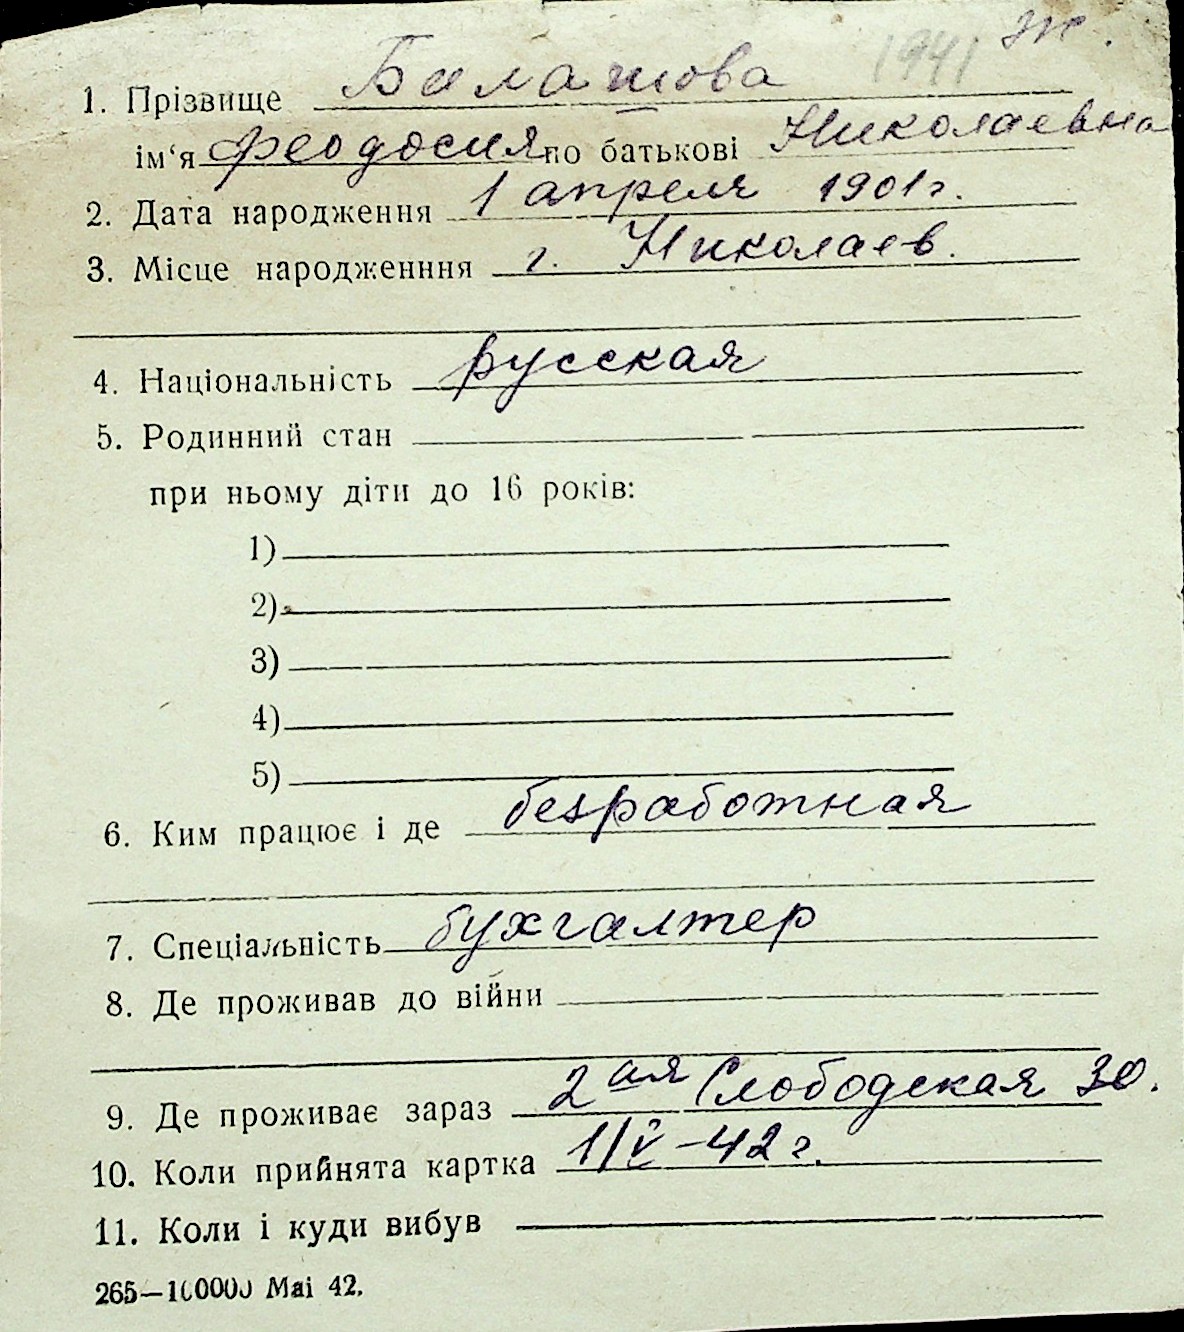 1941 ж.
1. Прізвище Балашова
ім‘я Феодосия по батькові Николаевна
2. Дата народження 1 апреля 1901 г.
3. Місце народженння г. Николаев.
4. Національність русская
5. Родинний стан
при ньому діти до 16 років:
1)
2)
3)
4)
5)
6. Ким працює і де безработная
7. Спеціальність бухгалтер
8. Де проживав до війни
9. Де проживає зараз 2ая Слободская 30.
10. Коли прийнята картка 1/V-42 г.
11. Коли і куди вибув
265—100000 Mai 42.